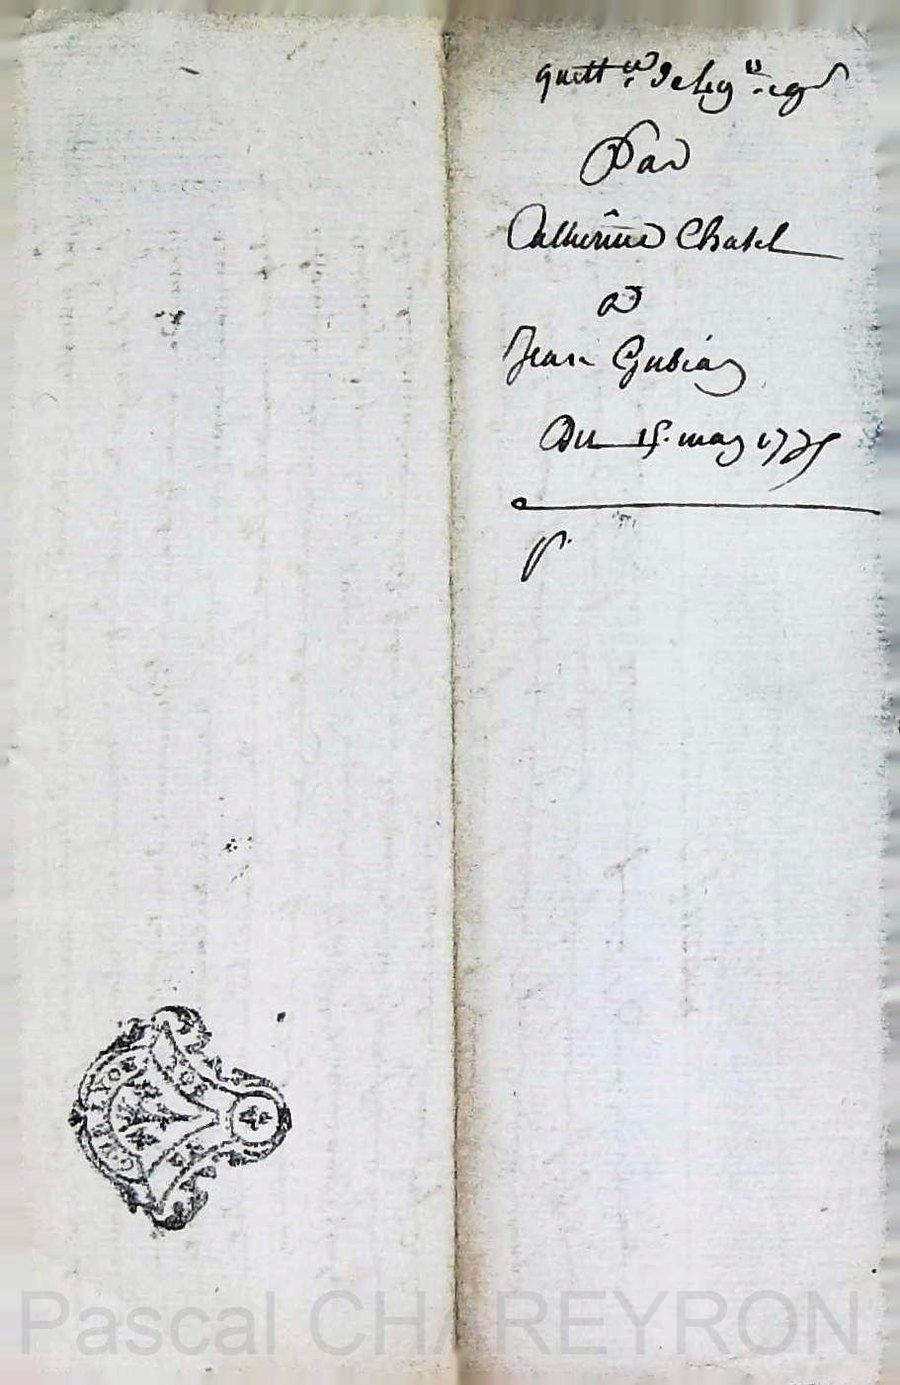 quitt.ce de leg.
Par
Catherine Chatel
a
Jean Gubian
Du 15. may 1775
p.
GNR LYON
Pascal CHAREYRON